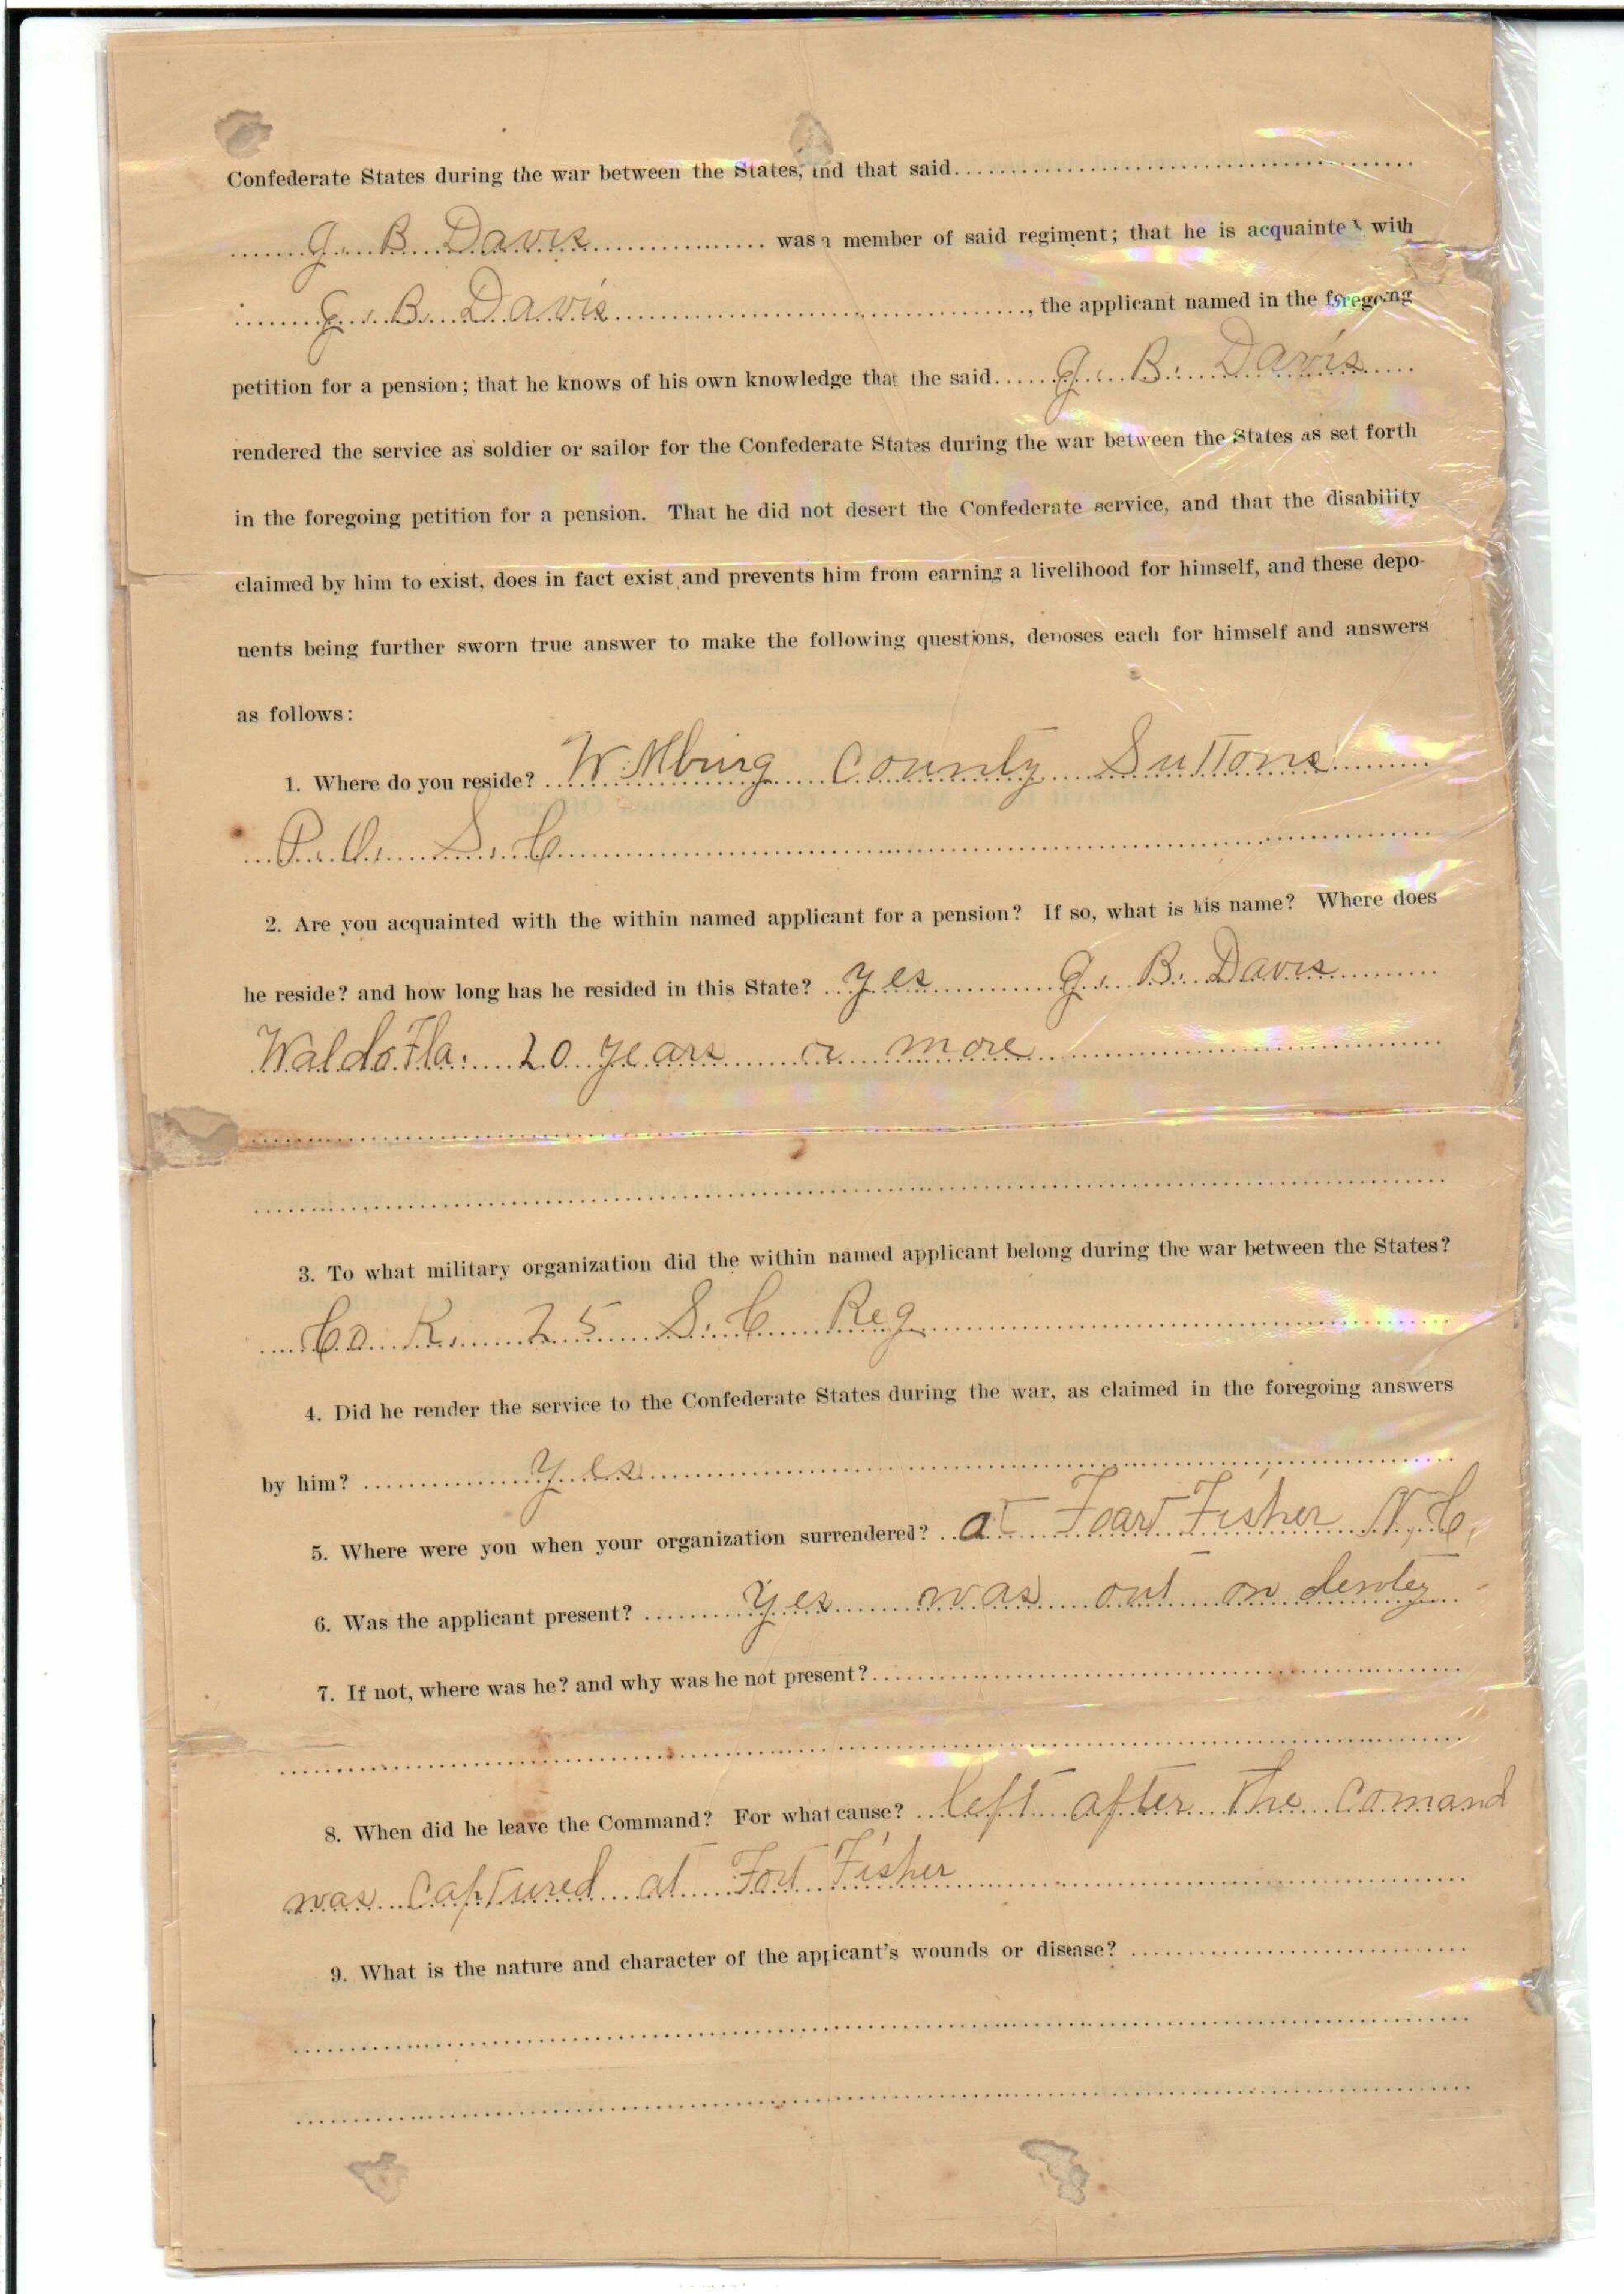 Confederate States during the war between the States, and that said
G. B. Davis was a member of said regiment; that he is acquainted with
G. B. Davis, the applicant named in the foregoing
petition for a pension; that he knows of his own knowledge that the said G. B. Davis
rendered the service as soldier or sailor for the Confederate States during the war between the States as set forth
in the foregoing petition for a pension. That he did not desert the Confederate service, and that the disability
claimed by him to exist, does in fact exist and prevents him from earning a livelihood for himself, and these depo-
nents being further sworn true answer to make the following questions, deposes each for himself and answers
as follows:
1. Where do you reside? County Suttons
P. O. S. C.
2. Are you acquainted with the within named applicant for a pension? If so, what is his name? Where does
he reside? and how long has he resided in this State? Yes G. B. Davis
Waldo Fla. 20 years or more
3. To what military organization did the within named applicant belong during the war between the States?
Co. K. 25 S. C. Reg
4. Did he render the service to the Confederate States during the war, as claimed in the foregoing answers
by him? Yes
5. Where were you when your organization surrendered? at Foart Fisher N. C.
6. Was the applicant present? yes was out on
7. If not, where was he? and why was he not present?
8. When did he leave the Command? For what cause? left after the Comand
was Captured at Fort Fisher
9. What is the nature and character of the appicant's wounds or disease?